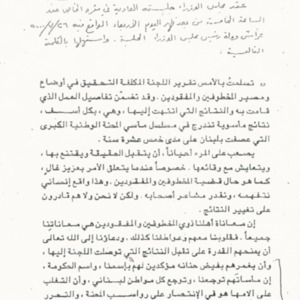 عقد مجلس الوزراء جلسته العادية في مقره الخاص عند
الساعة الخامسة من بعد ظهر اليوم الأربعاء الواقع فيه
دولة رئيس مجلس الوزراء الجلسة. واستهلها بالكلمة
التالية:
» تسلمتُ بالأمس تقرير اللجنة المكلفة التحقيق في أوضاع
ومصير المخطوفين والمفقودين. وقد تضمّن تفاصيل العمل الذي
قامت به والنتائج التي انتهت إليها، وهي، بكل أسف،
نتائج مأساوية تندرج في سلسلة مآسي المحنة الوطنية الكبرى
التي عصفت بلبنان على مدى خمس عشرة سنة.
يصعب على المرء أحياناً، أن يتقبل الحقيقة ويقتنع بها،
ويتعايش مع وقائعها. خصوصاً عندما يتعلق الأمر بعزيز غالٍ،
كما هو حال قضية المخطوفين والمفقودين. وهذا واقع إنساني
نتفهمه، ونقدر مشاعر أصحابه. ولكن لا نحن ولا هم قادرون
على تغيير النتائج.
إن معاناة أهلنا ذوي المخطوفين والمفقودين هي معاناتنا
جميعاً. فقلوبنا معهم وعواطفنا كذلك. ودعاؤنا إلى الله تعالى
أن يمنحهم القدرة على تقبل النتائج التي توصلت اللجنة إليها،
وأن يغمرهم بفيض حنانه مؤكدين لهم بإسمنا، واسم الحكومة،
أن مصابهم مصابنا، ونرجو كل مواطن لبناني، وأن التغلب
على آلامها هو في الإنتصار على رواسب المحنة، والتحرر